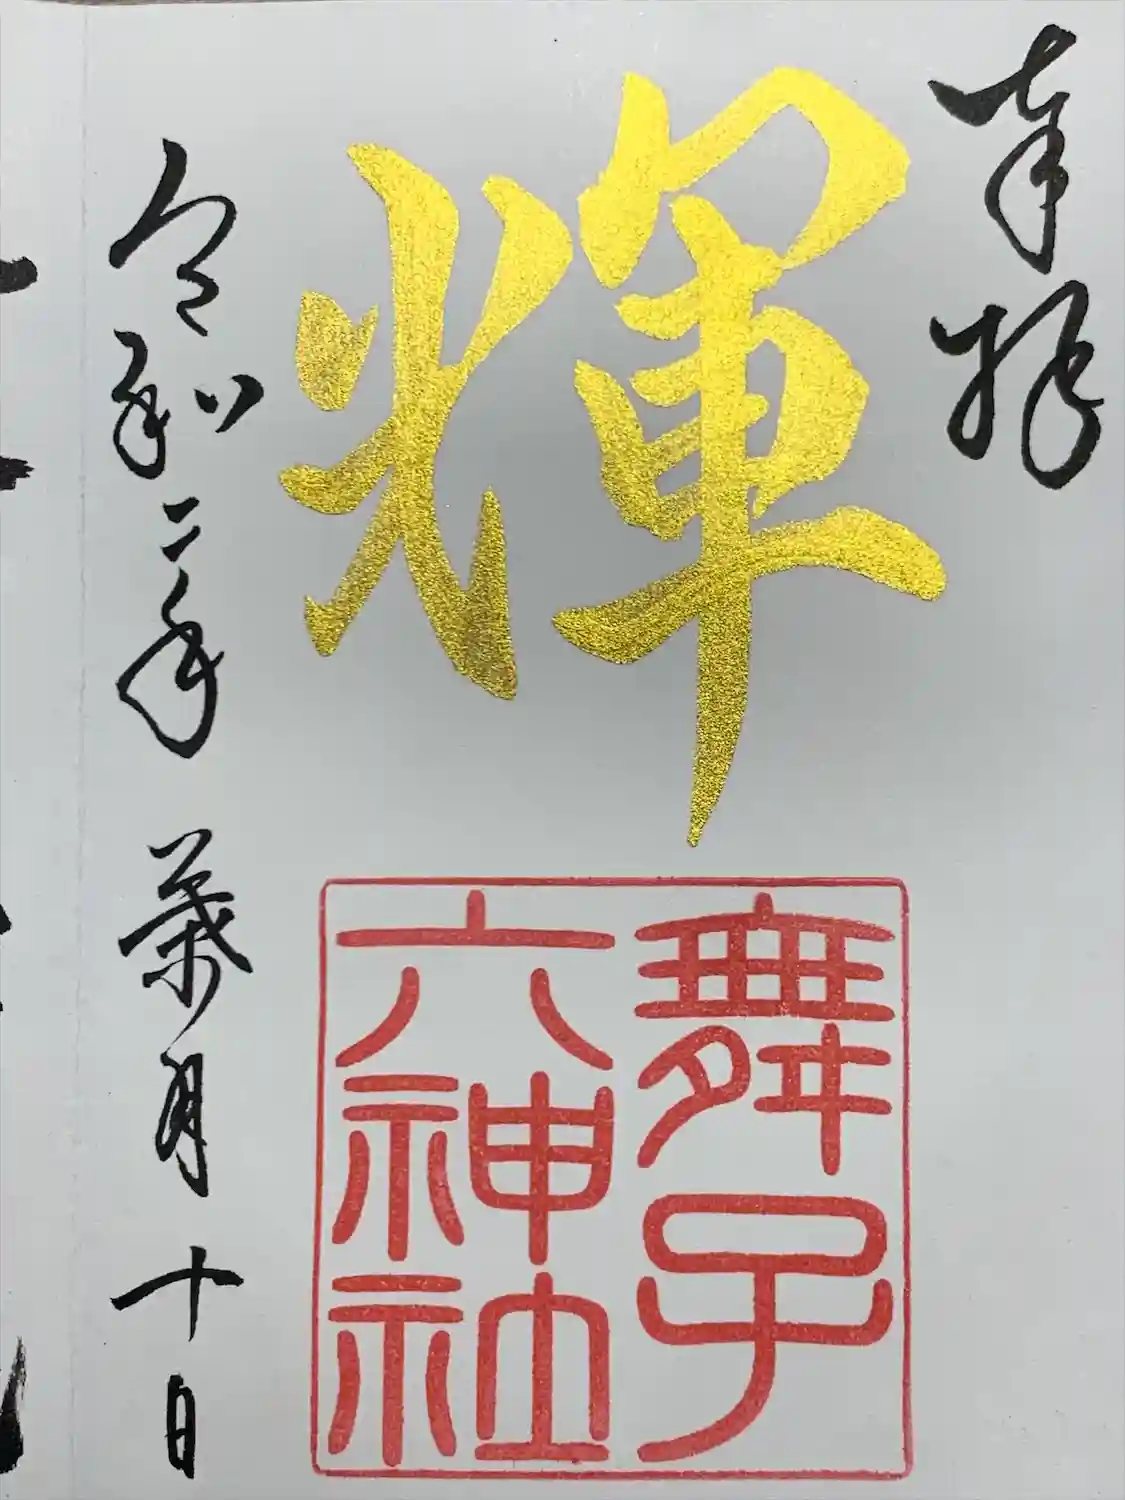 奉拝
輝
舞子
六神社
令和二年葉月十日